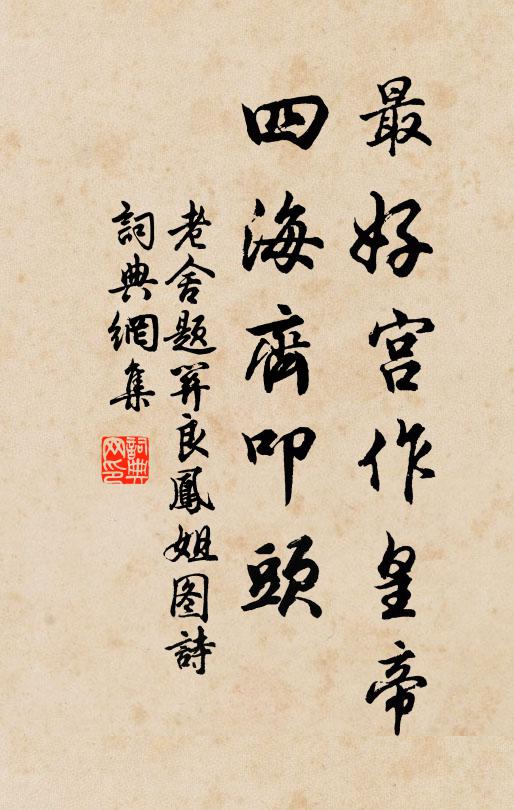 最好宫作皇帝
四海齊叩頭
老舍題羿良鳳姐图詩
詞典網集
詞典网印